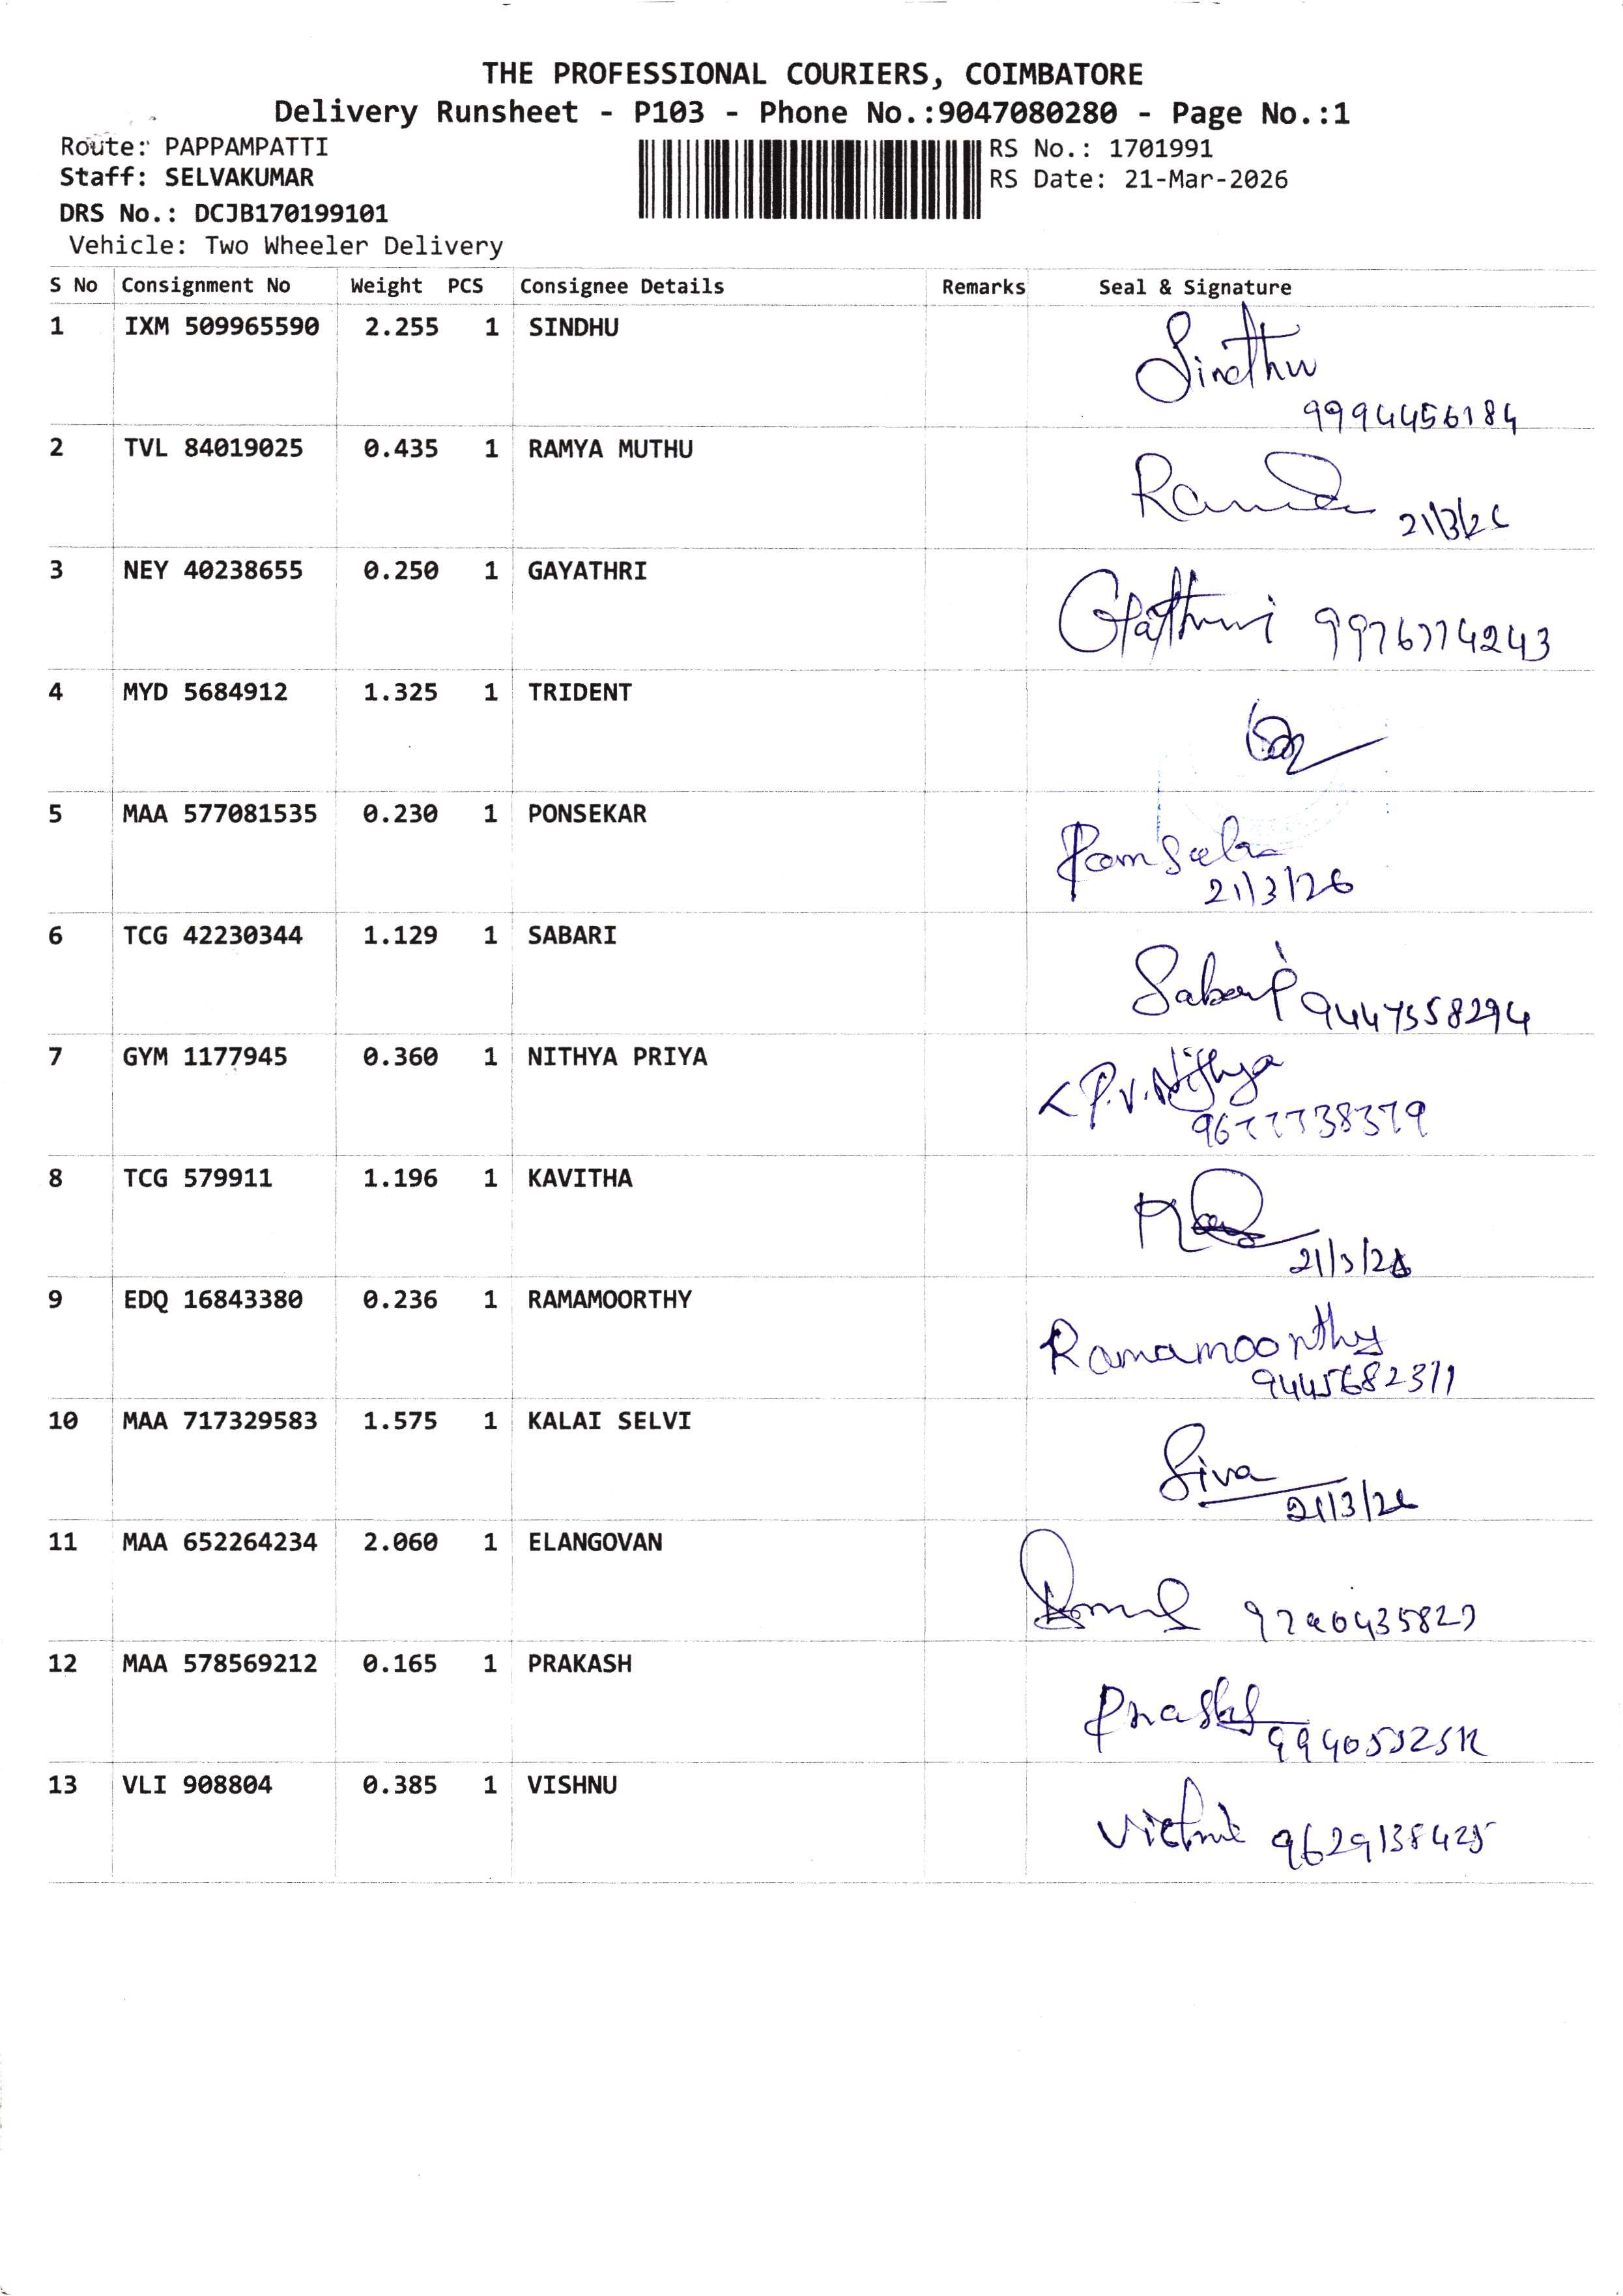 THE PROFESSIONAL COURIERS, COIMBATORE
Delivery Runsheet - P103 - Phone No.:9047080280 - Page No.:1
Route: PAPPAMPATTI
RS No.: 1701991
Staff: SELVAKUMAR
RS Date: 21-Mar-2026
DRS No.: DCJB170199101
Vehicle: Two Wheeler Delivery
S No Consignment No Weight PCS Consignee Details Remarks Seal & Signature
1 IXM 509965590 2.255 1 SINDHU Sindhu
9994456184
2 TVL 84019025 0.435 1 RAMYA MUTHU
21/3/26
3 NEY 40238655 0.250 1 GAYATHRI
4 MYD 5684912 1.325 1 TRIDENT
5 MAA 577081535 0.230 1 PONSEKAR
21/3/26
6 TCG 42230344 1.129 1 SABARI Sabari
7 GYM 1177945 0.360 1 NITHYA PRIYA P.V.Nithya
8 TCG 579911 1.196 1 KAVITHA
21/3/26
9 EDQ 16843380 0.236 1 RAMAMOORTHY Ramamoorthy
9445682311
10 MAA 717329583 1.575 1 KALAI SELVI Siva
21/3/26
11 MAA 652264234 2.060 1 ELANGOVAN
12 MAA 578569212 0.165 1 PRAKASH
13 VLI 908804 0.385 1 VISHNU 9629138425